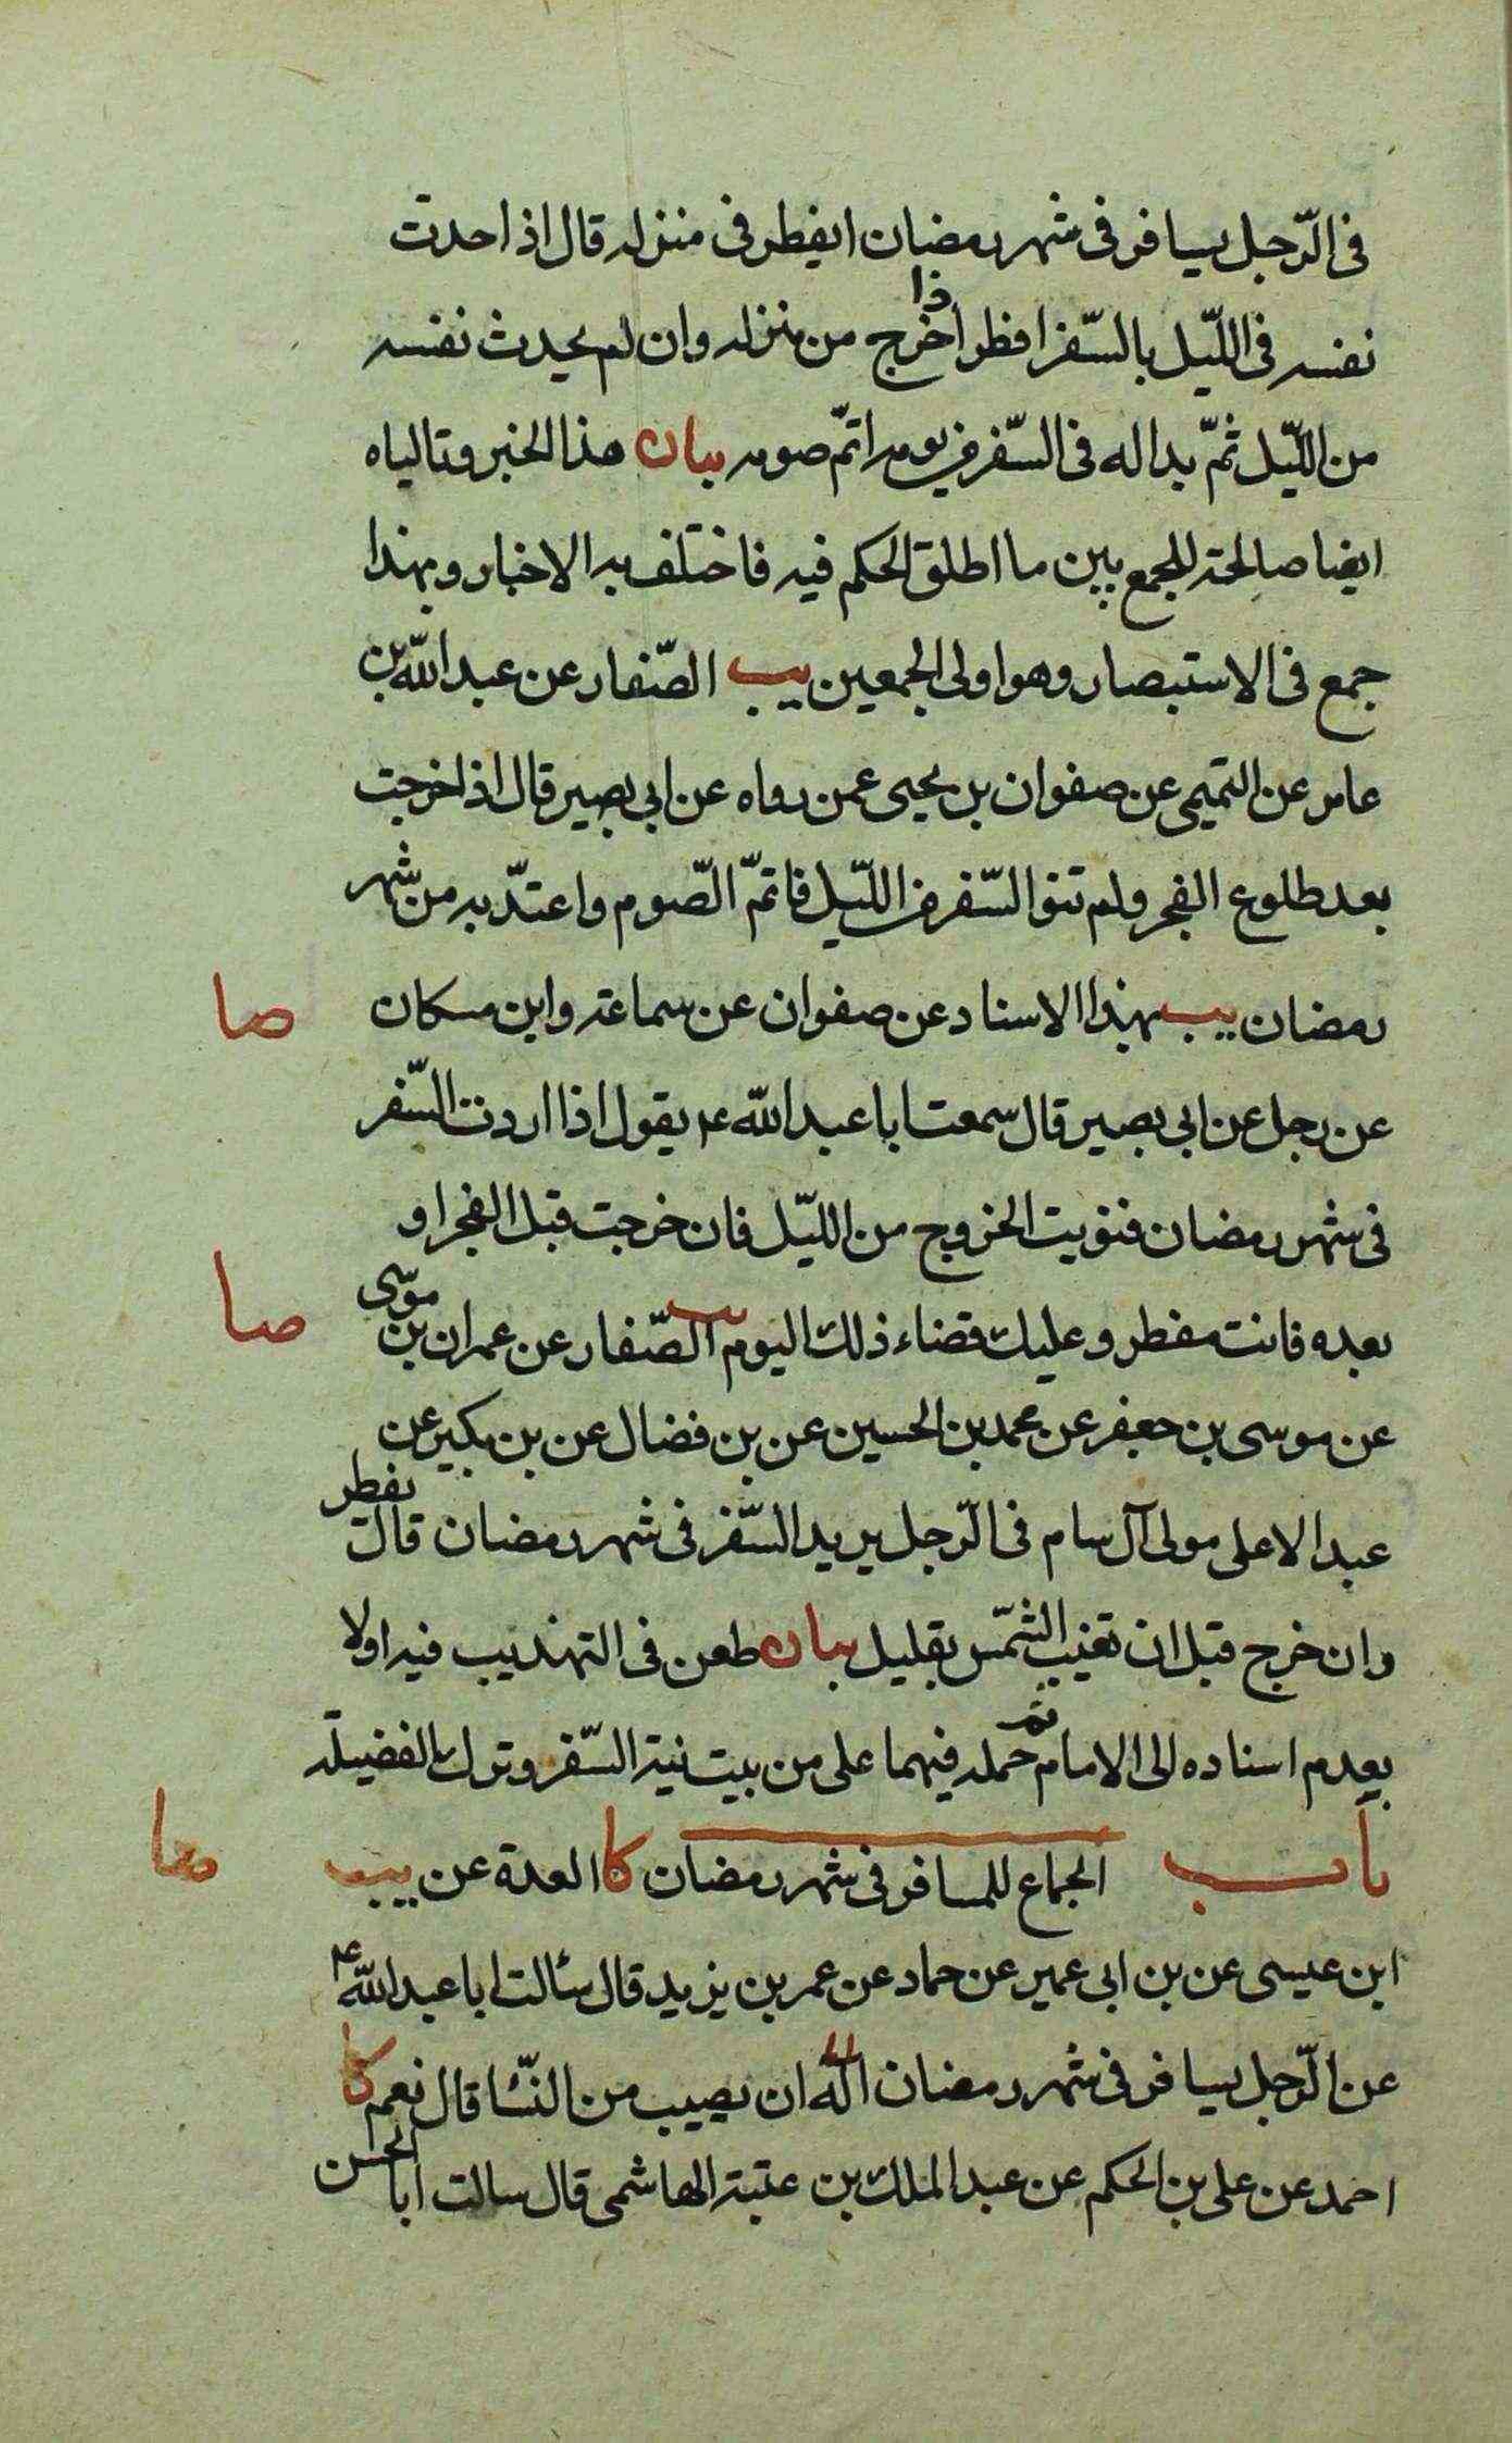 فى الرّجل يسافر فى شهر رمضان ايفطر فى منزله قال اذا حدث
نفسه فى اللّيل بالسّفر افطر اذا خرج من منزله وان لم يحدث نفسه
من اللّيل ثمّ بدا له فى السّفر فى يومه اتمّ صومه بيان هذا الخبر وتالياه
ايضا صالحة للجمع بين ما اطلق الحكم فيه فاختلف به الاخبار وبهذا
جمع فى الاستبصار وهو اولى الجمعين يب الصّفار عن عبد اللّه بن
عامر عن التميمى عن صفوان بن يحيى عمن رواه عن ابى بصير قال اذا خرجت
بعد طلوع الفجر ولم تنو السّفر من اللّيل فاتمّ الصّوم واعتدّ به من شهر
رمضان يب بهذا الاسناد عن صفوان عن سماعة وابن مسكان صا
عن رجل عن ابى بصير قال سمعت ابا عبد اللّه ع يقول اذا اردت السّفر
فى شهر رمضان فنويت الخروج من اللّيل فان خرجت قبل الفجر او
بعده فانت مفطر وعليك قضاء ذلك اليوم يب الصّفار عن عمران بن موسى صا
عن موسى بن جعفر عن محمد بن الحسين عن بن فضال عن بن بكير عن
عبد الاعلى مولى آل سام فى الرّجل يريد السّفر فى شهر رمضان قال يفطر
وان خرج قبل ان تغيب الشّمس بقليل بيان طعن فى التهذيب فيه اولا
بعدم اسناده الى الامام ثم حمله فيهما على من بيت نية السّفر وترك الفضيلة
باب الجماع للمسافر فى شهر رمضان كا العدة عن يب صا
ابن عيسى عن بن ابى عمير عن حماد عن عمر بن يزيد قال سئالت ابا عبد اللّه ع
عن الرّجل يسافر فى شهر رمضان اله ان يصيب من النّسا قال نعم كا
احمد عن على بن الحكم عن عبد الملك بن عتبة الهاشمى قال سالت ابا الحسن